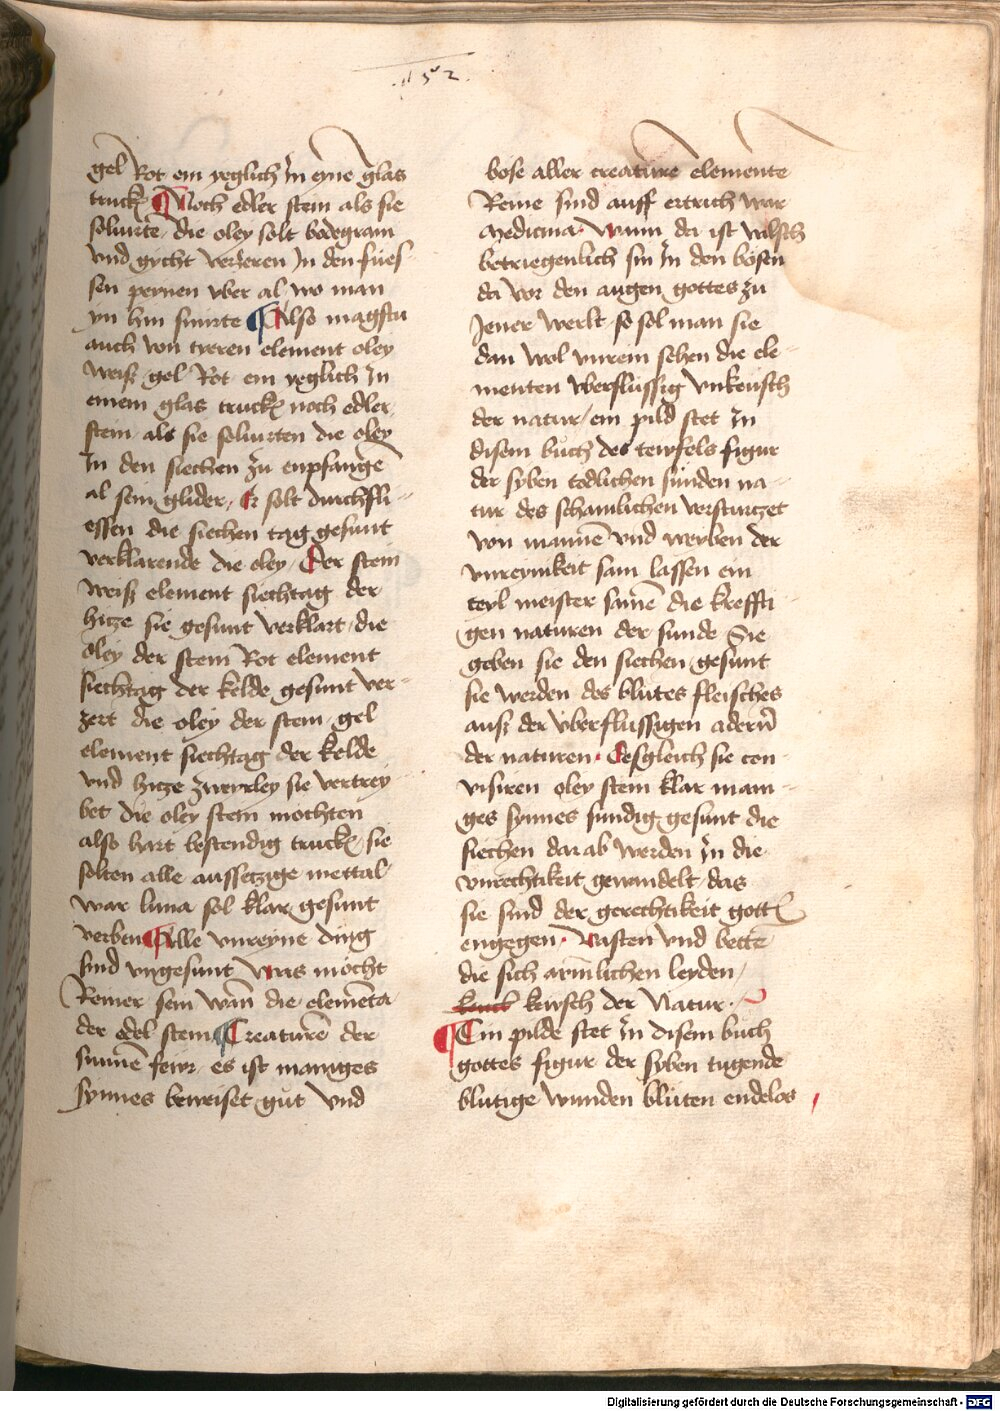 152.
gel Rot ein yeglich jn eyne̅ glas
truck̅ ¶ Noch edler stein als sie
soluirte̅ die oley solt bodegram
vnd gycht verzeren jn den fües-
sen pernen vber al wo man
yn hin fuirte ¶ Also magstu
auch von tyeren element oley
weiß gel Rot ein yeglich jn
einem glas truck̅ noch edler
stein als sie soluirten die oley
jn den siechen zu enpfange̅
al sein glider, Er solt durchfli-
essen die siechen tag gesunt
verklarende die oley, Der stein
weiß element siechtag der
hicze sie gesunt verklart, die
oley der stein Rot element
siechtag der kelde gesunt ver-
zert die oley der stein gel
element siechtag der kelde
vnd hicze zweyrley sie vertrey
bet die oley stein mochten
also hart bestendig truck̅ sie
solten alle aussetzige mettal
war luna sol klar gesunt
verben ¶ Alle vnreyne ding
sind vngesunt Was möcht
Reiner sein wan̅ die eleme̅ta
der edel stein ¶ Creature̅ der
sunne̅ feur es ist maniges
synnes beweiset gut vnd
bose aller creature̅ elemente
Reine sind auff ertrich war
Medicina. Wann da ist valsch
betriegenlich sin jn den bösen
da vor den augen gottes zu
jener werlt so sol man sie
dan wol vnrein sehen die ele-
menten vberflüssig vnkeusch
der natur, ein pild stet jn
disem buch des teufels figur
der syben todlichen sunden na-
tur des schamlichen versturczet
von manne̅ vnd weyben der
vnreynikeit sam lassen ein
teyl meister same̅ die kreffti
gen naturen der sunde Sie
geben sie den siechen gesunt
sie werden des blutes fleisches
auß der vberflussigen adern̅
der naturen. Desgleich sie con-
visiren oley stein klar mani-
ges synnes sundig gesunt die
siechen darab werden jn die
vnrechtikeit gewandelt das
sie sind der gerechtikeit gott̅
engegen. Vasten vnd bette̅
die sich arm̅lichen leyden,
kewsch der Natur.
¶ Ein pilde stet jn disem buch
gottes figur der syben tugende
blutige wunden bluten endelos
Digitalisierung gefördert durch die Deutsche Forschungsgemeinschaft - DFG